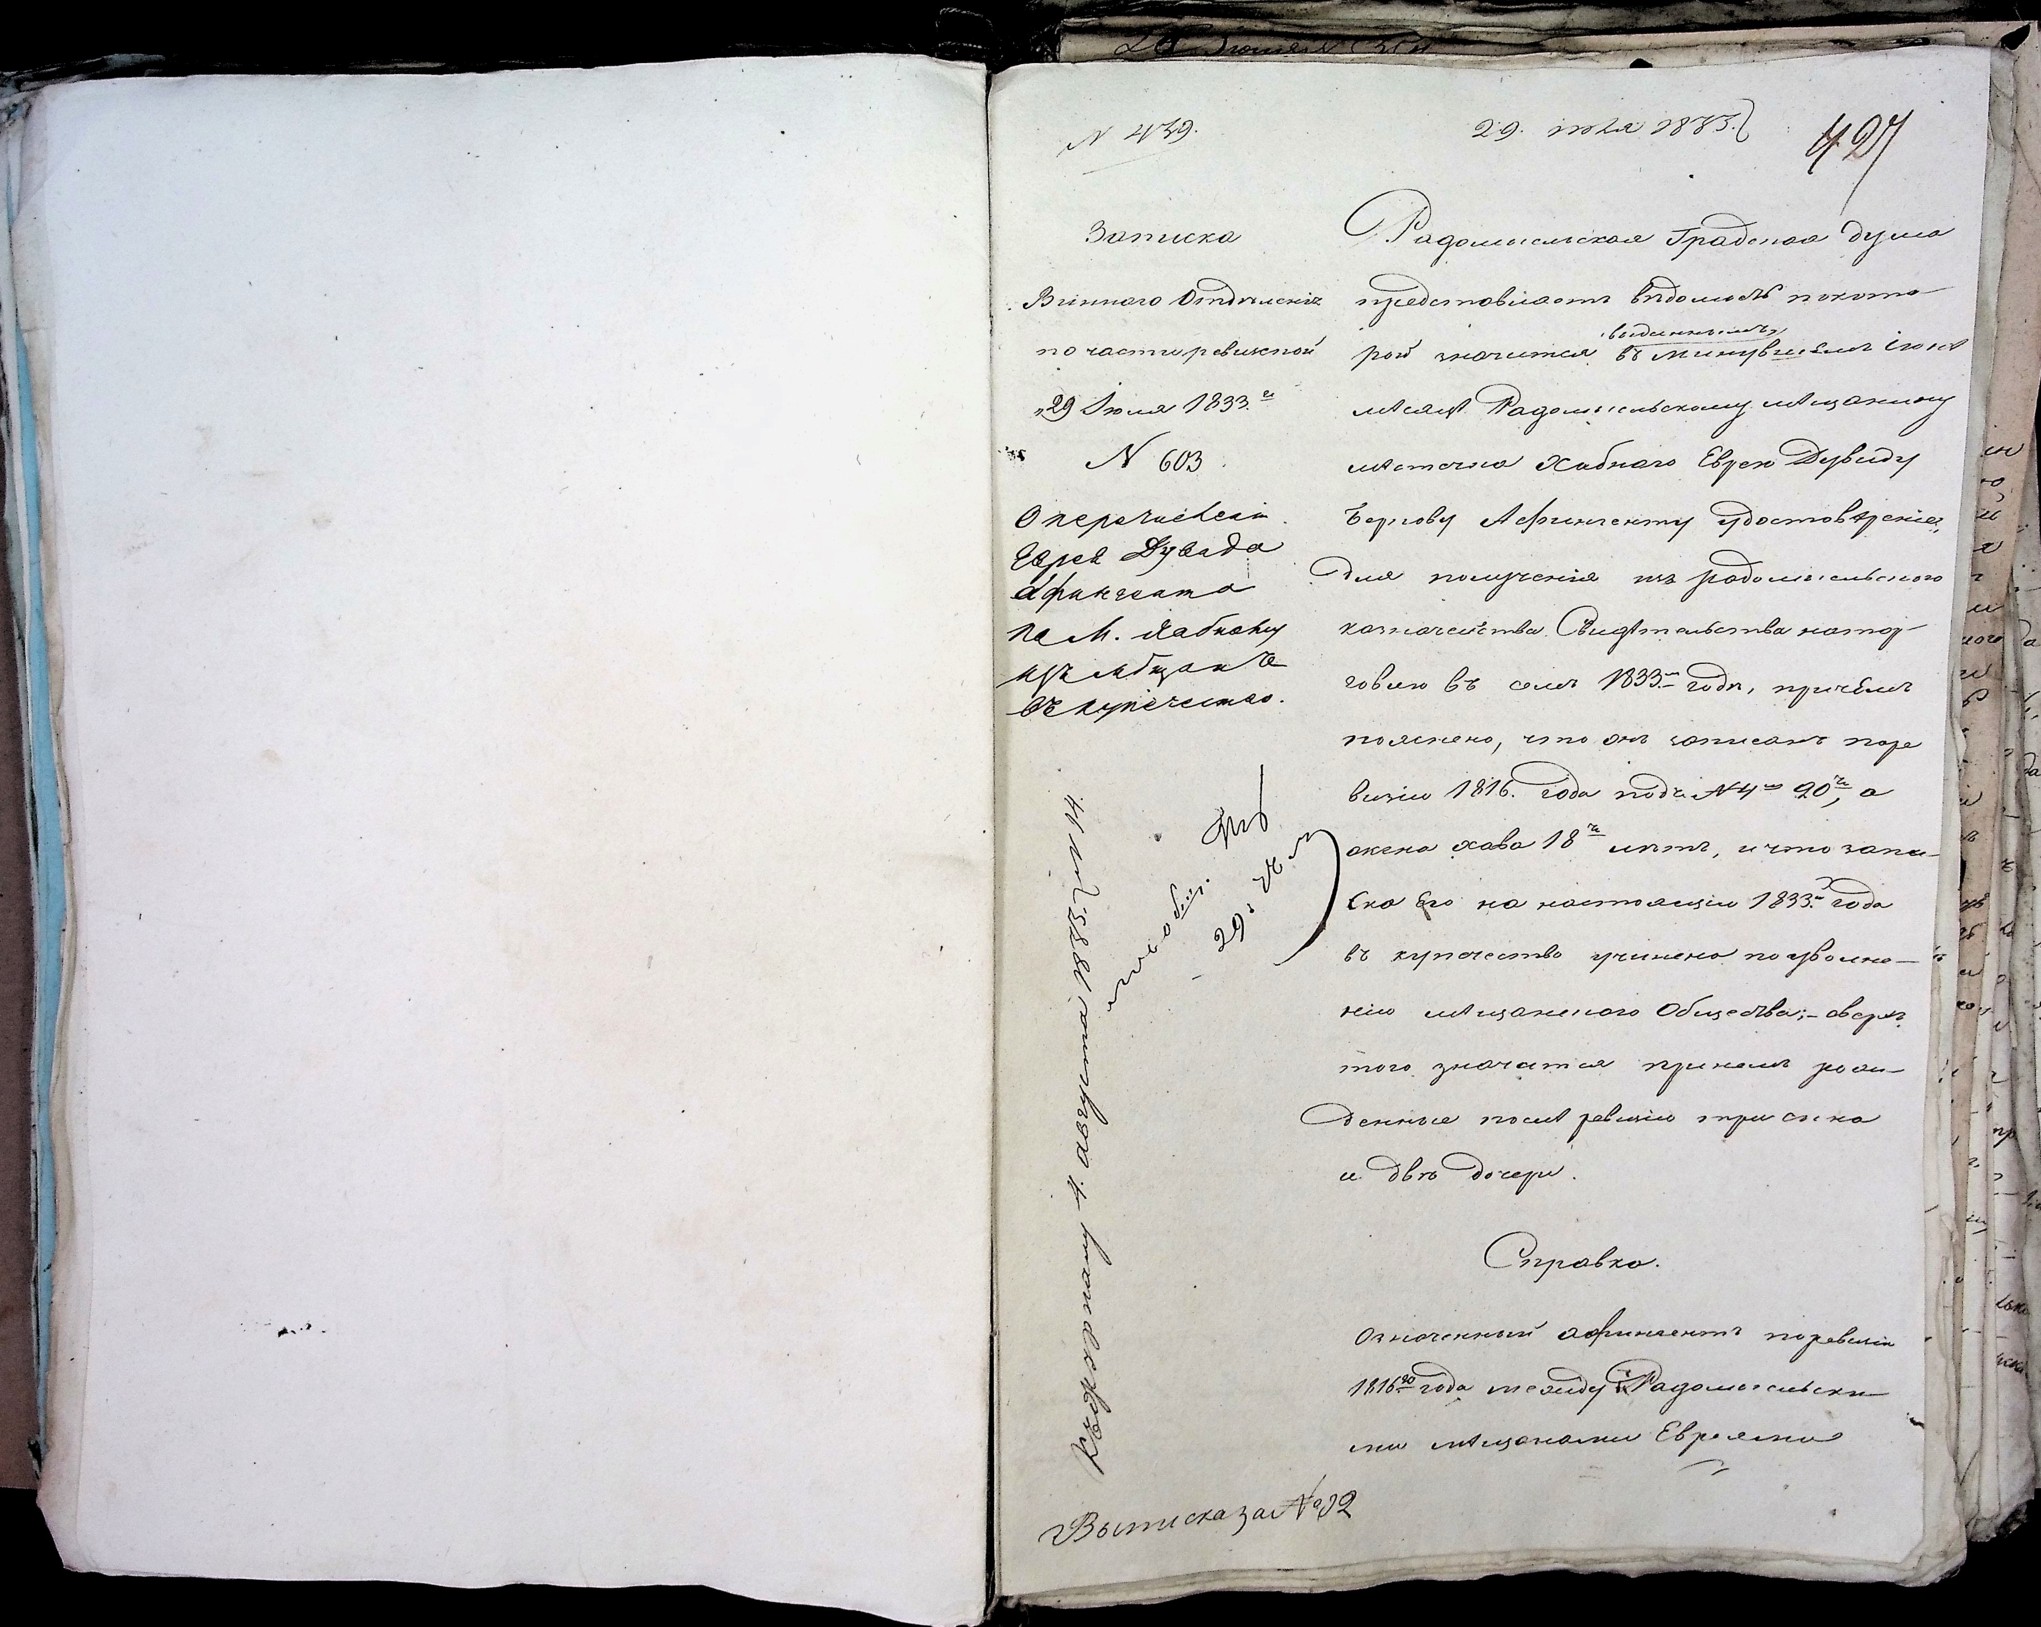 N 439.
29. июля 1833.
427
Записка
Виннаго Отделенія
по части ревизкой
„29 Июля 1833.го
N 603.
О перечислении
Еврея Дувида
Афингента
по М. Хабному
изъ мѣщанъ
въ купечество.
Радомысльская Градская дума
представляетъ вѣдомость по кото-
рой значится выданнымъ въ минувшемъ Іюнѣ
мѣсяцѣ Радомысльскому мѣщанину
мѣстечка Хабнаго Еврею Дувиду
Беркову Афингенту удостовѣреніе,
для полученія изъ радомысльского
казначейства Свидѣтельства на тор-
говлю въ семъ 1833.м годѣ, причемъ
пояснено, что онъ записанъ по ре
визіи 1816. года подъ N 4 20, а
жена Хава 18 лѣтъ, и что запи-
ска его на настоящій 1833. года
въ купечество учинено по уволне-
нію мѣщанского Общества; - сверхъ
того значатся при немъ рож-
денные послѣ ревизіи три сына
и двѣ дочери.
Справка.
Означенный Афингентъ по ревизіи
1816го года между Радомысльски-
ми мѣщанами Евреями
Къ 4. августа 1833. N 14.
Выписка за № 92